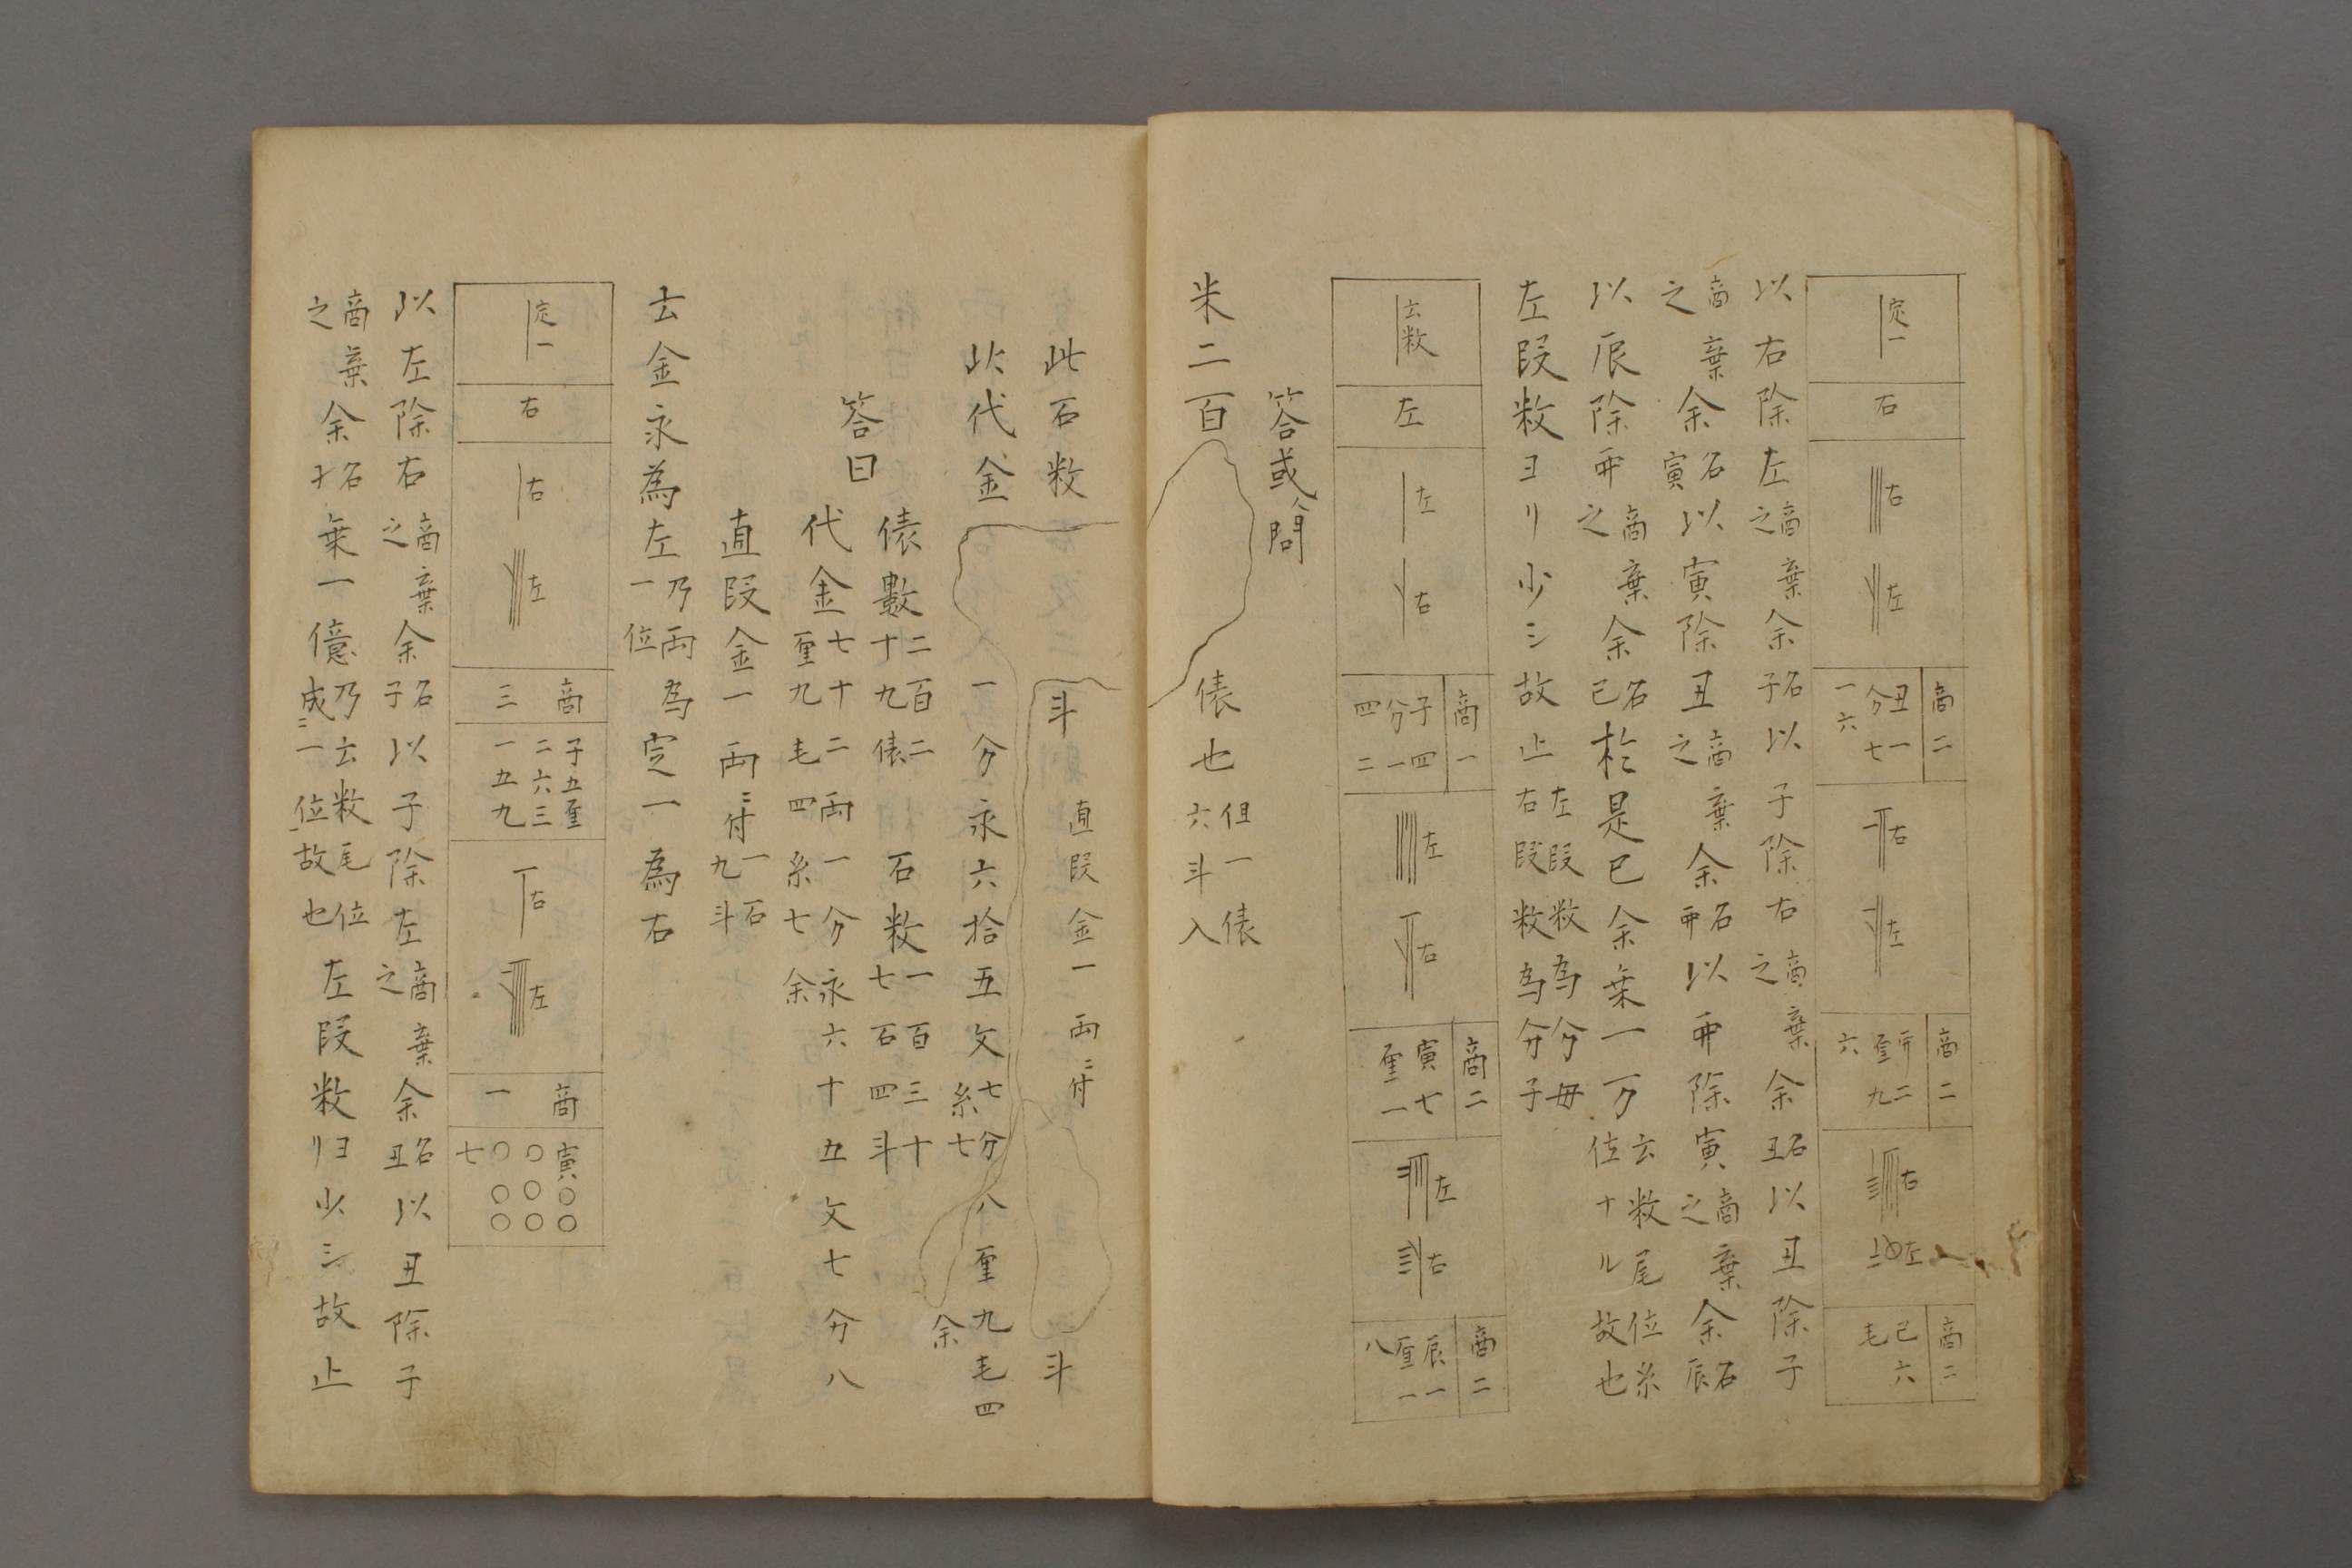 定一
右
右
左
商二
丑一七
分
一六
右
左
商二
二九
厘
六
右
左
商二
巳六
毛
以右除左商之棄余名子以子除右商之棄余名丑以丑除子
商之棄余名寅以寅除丑商之棄余名卯以卯除寅商之棄余名辰
以辰除卯商之棄余名巳於是巳余棄一万云数尾位糸位ナル故也
左段数ヨリ少シ故止左段数為分母右段数為分子
云数
左
左
右
商一
子四一
分
四二
左
右
商二
寅七一
厘
左
右
商二
辰一一
厘
八
答或人問
米二百俵也但一俵六斗入
此石数斗直段金一両ニ付斗
此代金一分永六拾五文七分八厘九毛四糸七余
答曰
俵數二百二十九俵石数一百三十七石四斗
代金七十二両一分永六十五文七分八厘九毛四糸七余
直段金一両ニ付一石九斗
云金永為左乃両一位為定一為右
定一
右
右
左
商三
子五厘
二六三
一五九
右
左
商一
寅〇〇
〇〇〇
〇〇〇
七
以左除右商之棄余名子以子除左商之棄余名丑以丑除子
商之棄余名寸乗一億乃云数尾位成ニ一位故也左段数ヨリ少シ故止